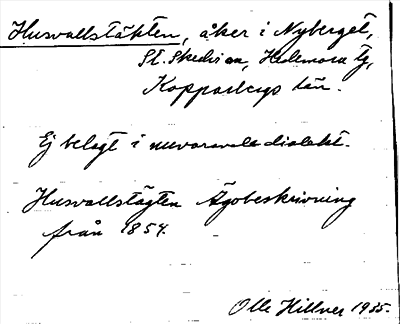 Husvallstäkten, åker i Nyberget,
St. Skedvi sn, Hedemora tg,
Kopparbergs län.
Ej belagt i nuvarande dialekt.
Husvallstägten Ägobeskrivning
från 1854.
Olle Hillner 1935.